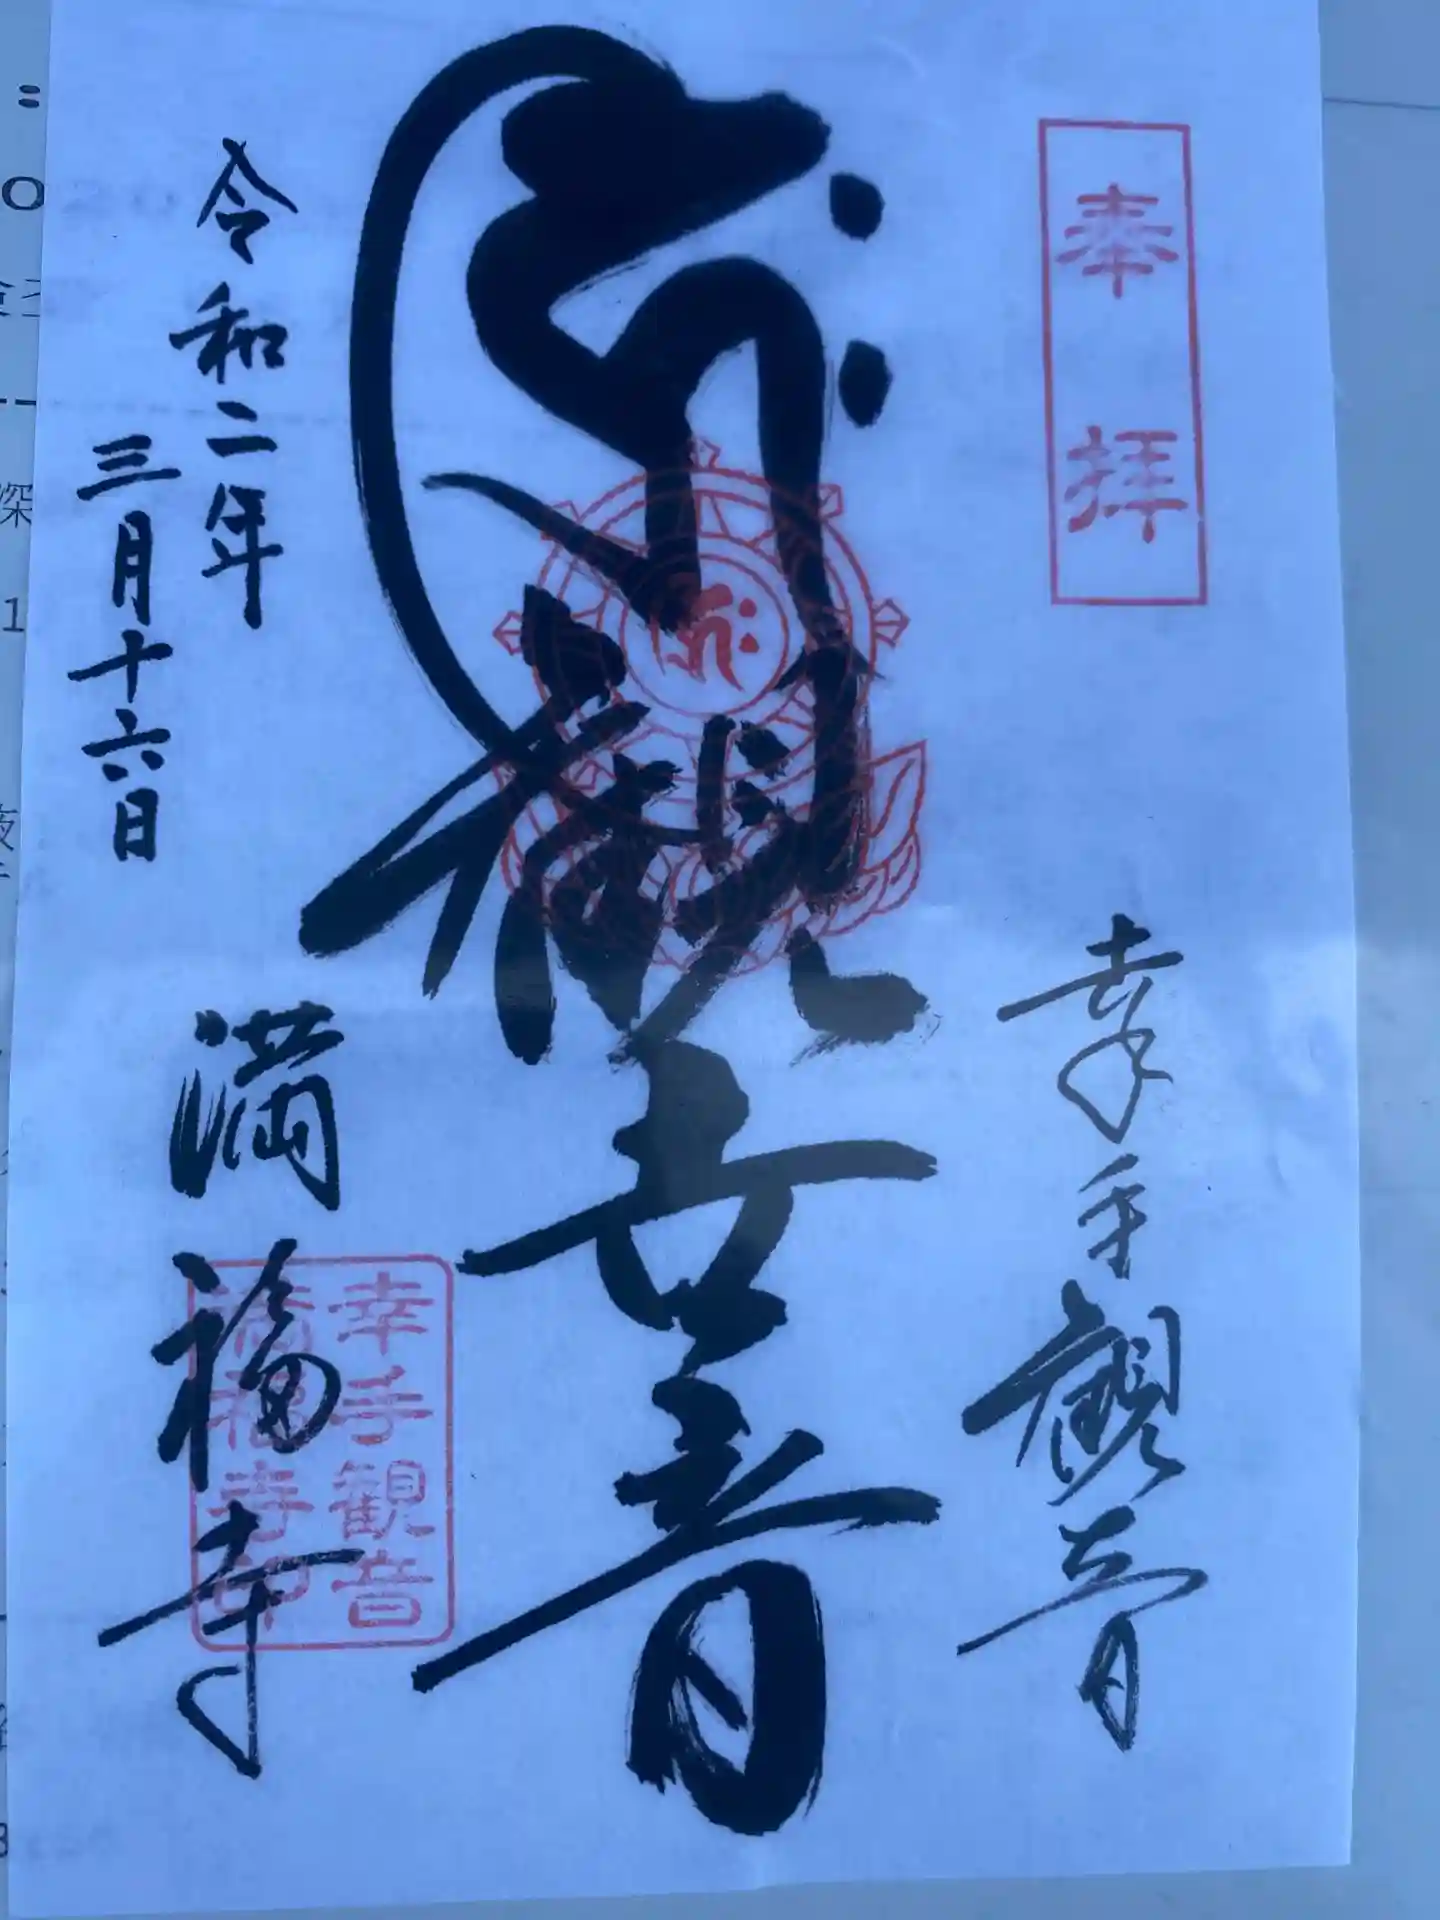 奉拝
幸手観音
観世音
令和二年
三月十六日
満福寺
幸手観音
満福寺印